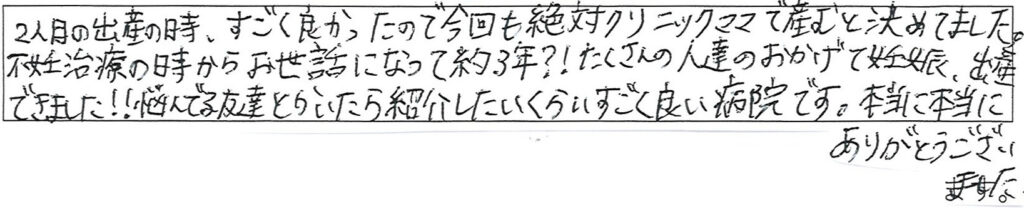 2人目の出産の時、すごく良かったので今回も絶対クリニックママで産むと決めてました。
不妊治療の時からお世話になって約3年?!たくさんの人達のおかげで妊娠、出産
できました!!悩んでる友達とかいたら紹介したいくらいすごく良い病院です。本当に本当に
ありがとうござい
ました。